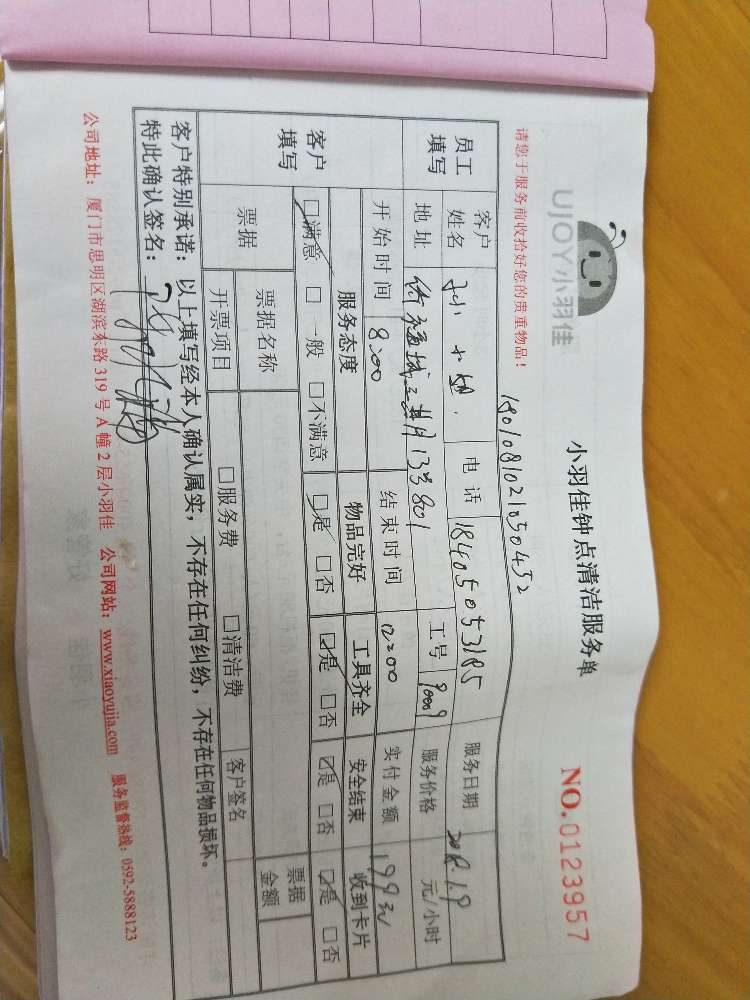 UJOY小羽佳
小羽佳钟点清洁服务单
NO.0123957
请您于服务前收拾好您的贵重物品！
1801081021050432
员工填写
客户姓名 孙小姐. 电话 18405053185 服务日期 2018.1.9
地址 工号 9009 服务价格 元/小时
开始时间 8:00 结束时间 12:00 实付金额 199元
客户填写
服务态度 物品完好 工具齐全 安全结束 收到卡片
□满意 □一般 □不满意 □是 □否 □是 □否 □是 □否 □是 □否
票据 票据名称 票据金额
开票项目 □服务费 □清洁费 客户签名
客户特别承诺：以上填写经本人确认属实，不存在任何纠纷，不存在任何物品损坏。
特此确认签名：
公司地址：厦门市思明区湖滨东路 319 号 A 幢 2 层小羽佳 公司网站：www.xiaoyujia.com 服务监督热线：0592-5888123